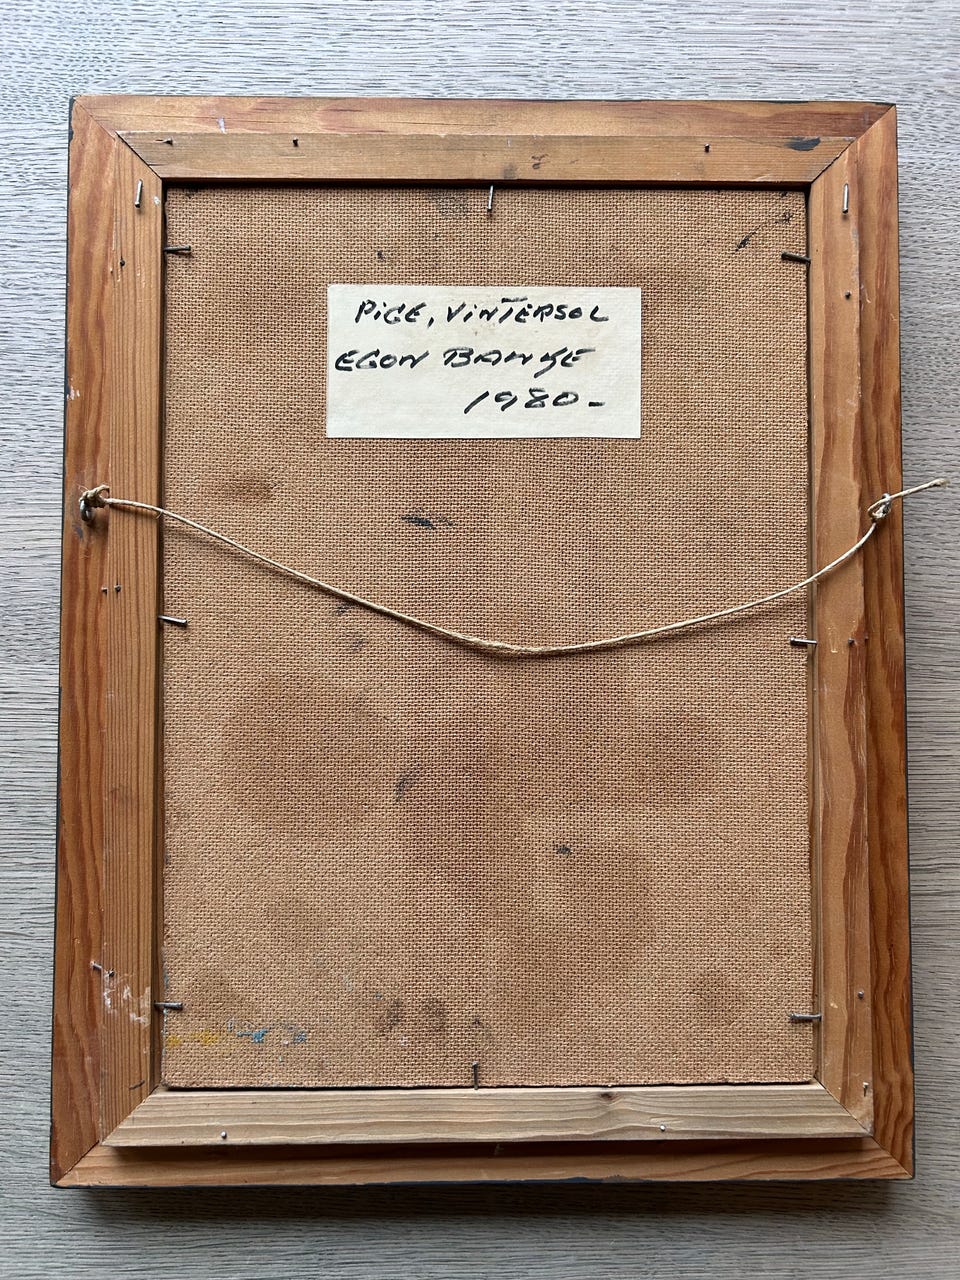 PiGE, ViNTERSOL
EGON BANKE
1980-